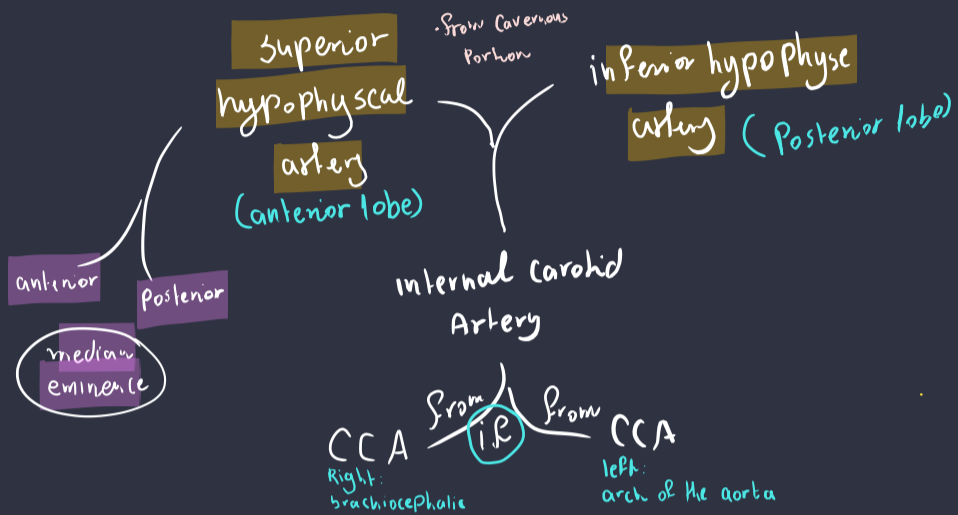 superior
hypophyscal
artery
(anterior lobe)
• from Cavernous
Portion
inferior hypophyse
artery (Posterior lobe)
anterior
Posterior
median
eminence
internal Carotid
Artery
from
from
if
CCA
Right:
brachiocephalic
CCA
left:
arch of the aorta